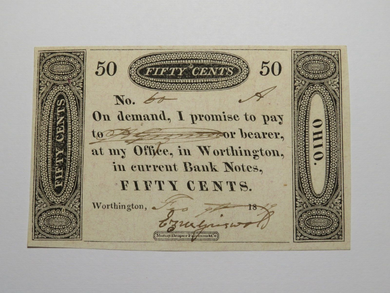 50 FIFTY CENTS 50
No. 60 A
On demand, I promise to pay
to or bearer,
at my Office, in Worthington,
in current Bank Notes,
FIFTY CENTS.
Worthington, 18
Ezra Griswold
FIFTY CENTS
OHIO.